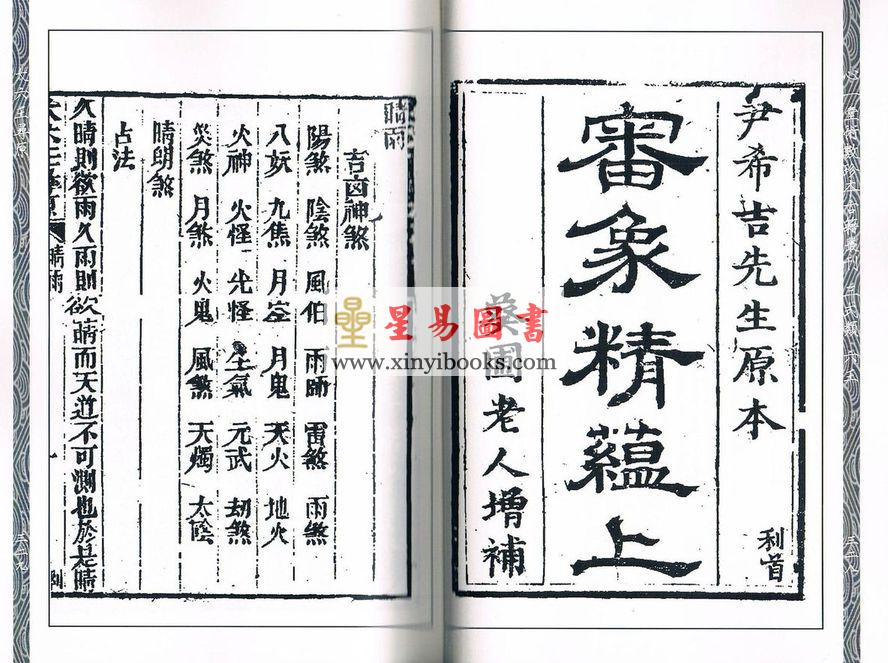 尹希吉先生原本
利首
審象精蘊上
葵圃老人增補
晴雨
吉凶神煞
陽煞 陰煞 風伯 雨師 雷煞 雨煞
八妖 九焦 月空 月鬼 天火 地火
火神 火怪 光怪 生氣 元武 劫煞
災煞 月煞 火鬼 風煞 天燭 太陰
晴明煞
占法
久晴則欲雨久雨則欲晴而天道不可測也於是晴
晴雨
星易圖書
www.xinyibooks.com